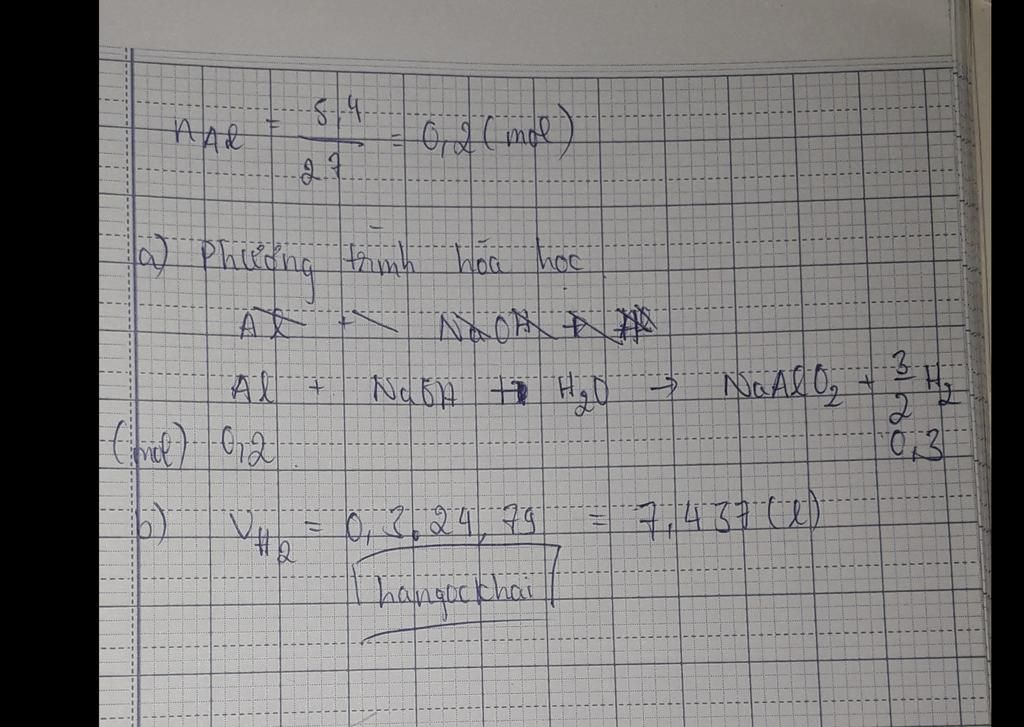 nAl = 5,4/27 = 0,2 (mol)
a) Phương trình hóa học
Al + NaOH + H2O → NaAlO2 + 3/2 H2
(mol) 0,2 0,3
b) VH2 = 0,3.24,79 = 7,437 (l)
hangockhai